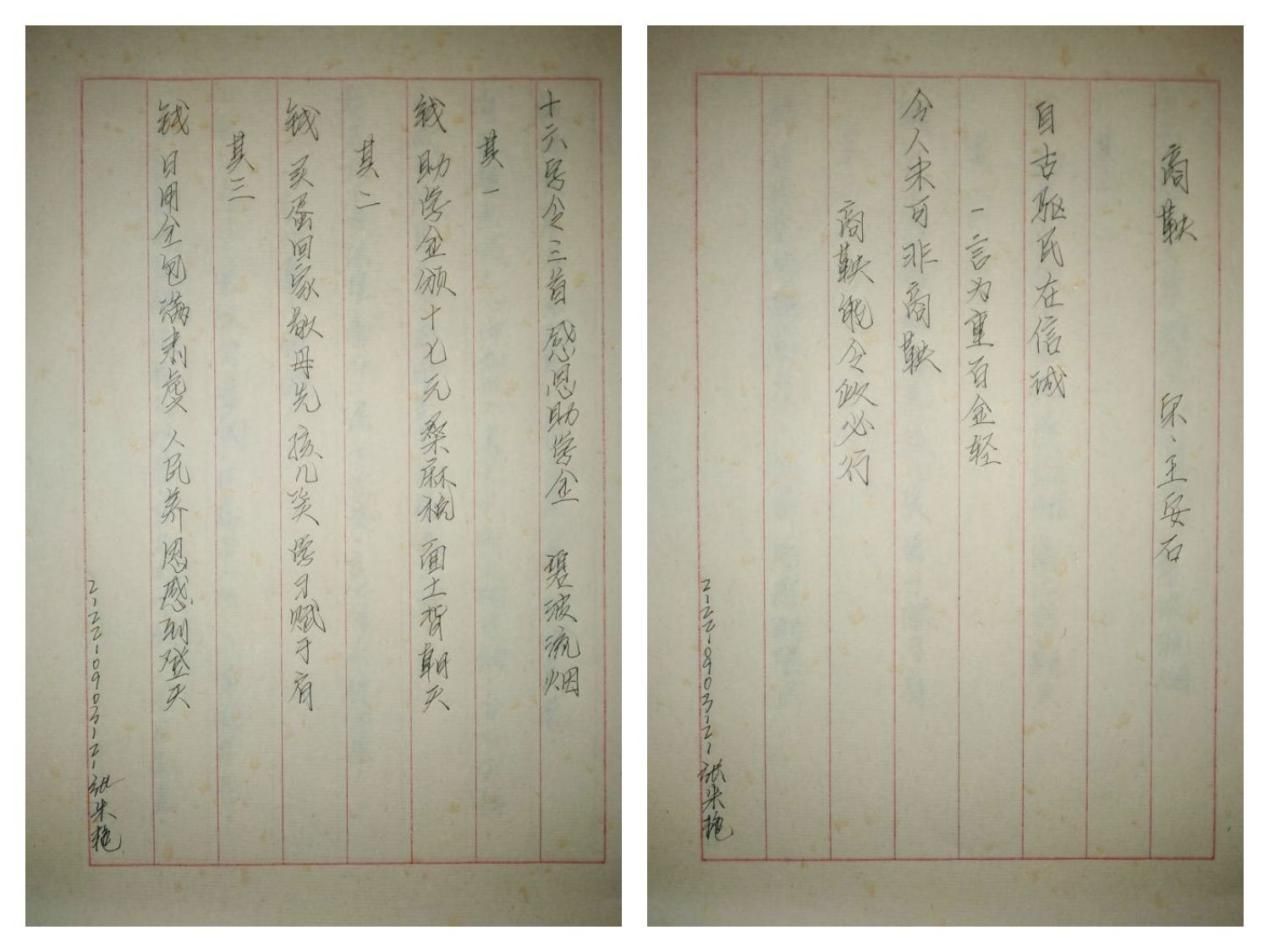 十六字令三首 感恩助学金 碧波流烟
其一
钱 助学金颁十七元 桑麻桃 面土背朝天
其二
钱 买蛋回家敬母先 孩儿笑 学习赋于肩
其三
钱 日用全包满刺虔 人民养 恩感到登天
商鞅 宋·王安石
自古驱民在信诚
一言为重百金轻
今人未可非商鞅
商鞅能令政必行